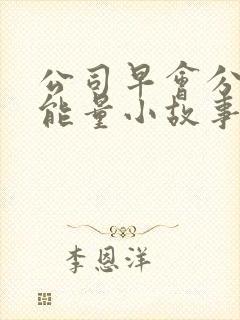 公司早會分
能量小故事
李恩洋